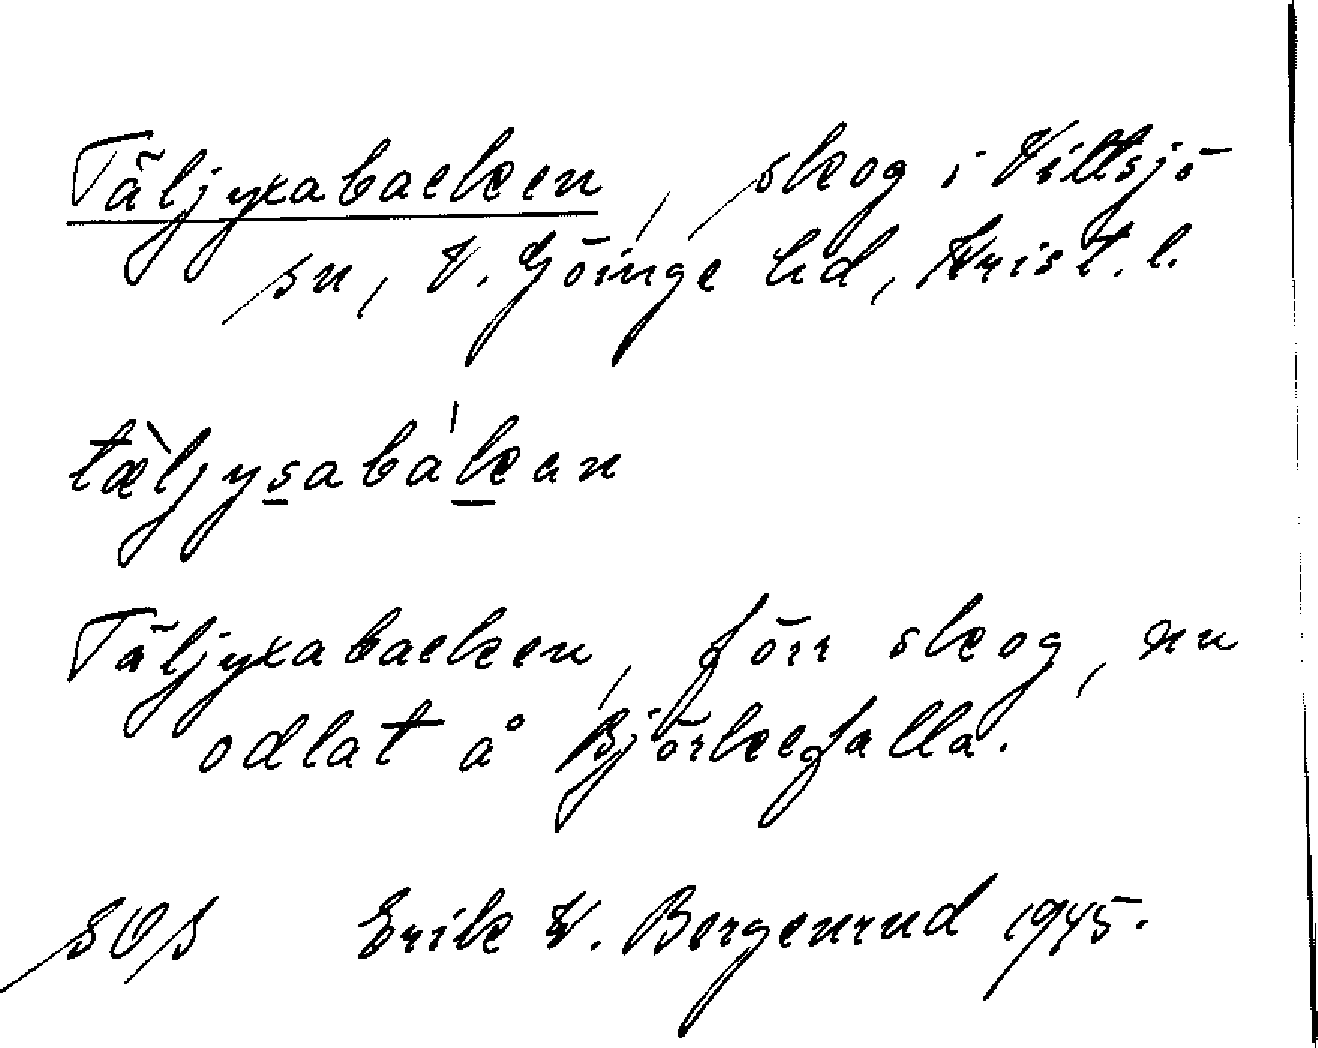 Täljyxabacken, skog i Vittsjö
sn, V. Göinge hd, Krist. l.
tæ̀ljysabákan
Täljyxabacken, förr skog, nu
odlat å Björkefalla.
SOS Erik W. Bergenrud 1945.